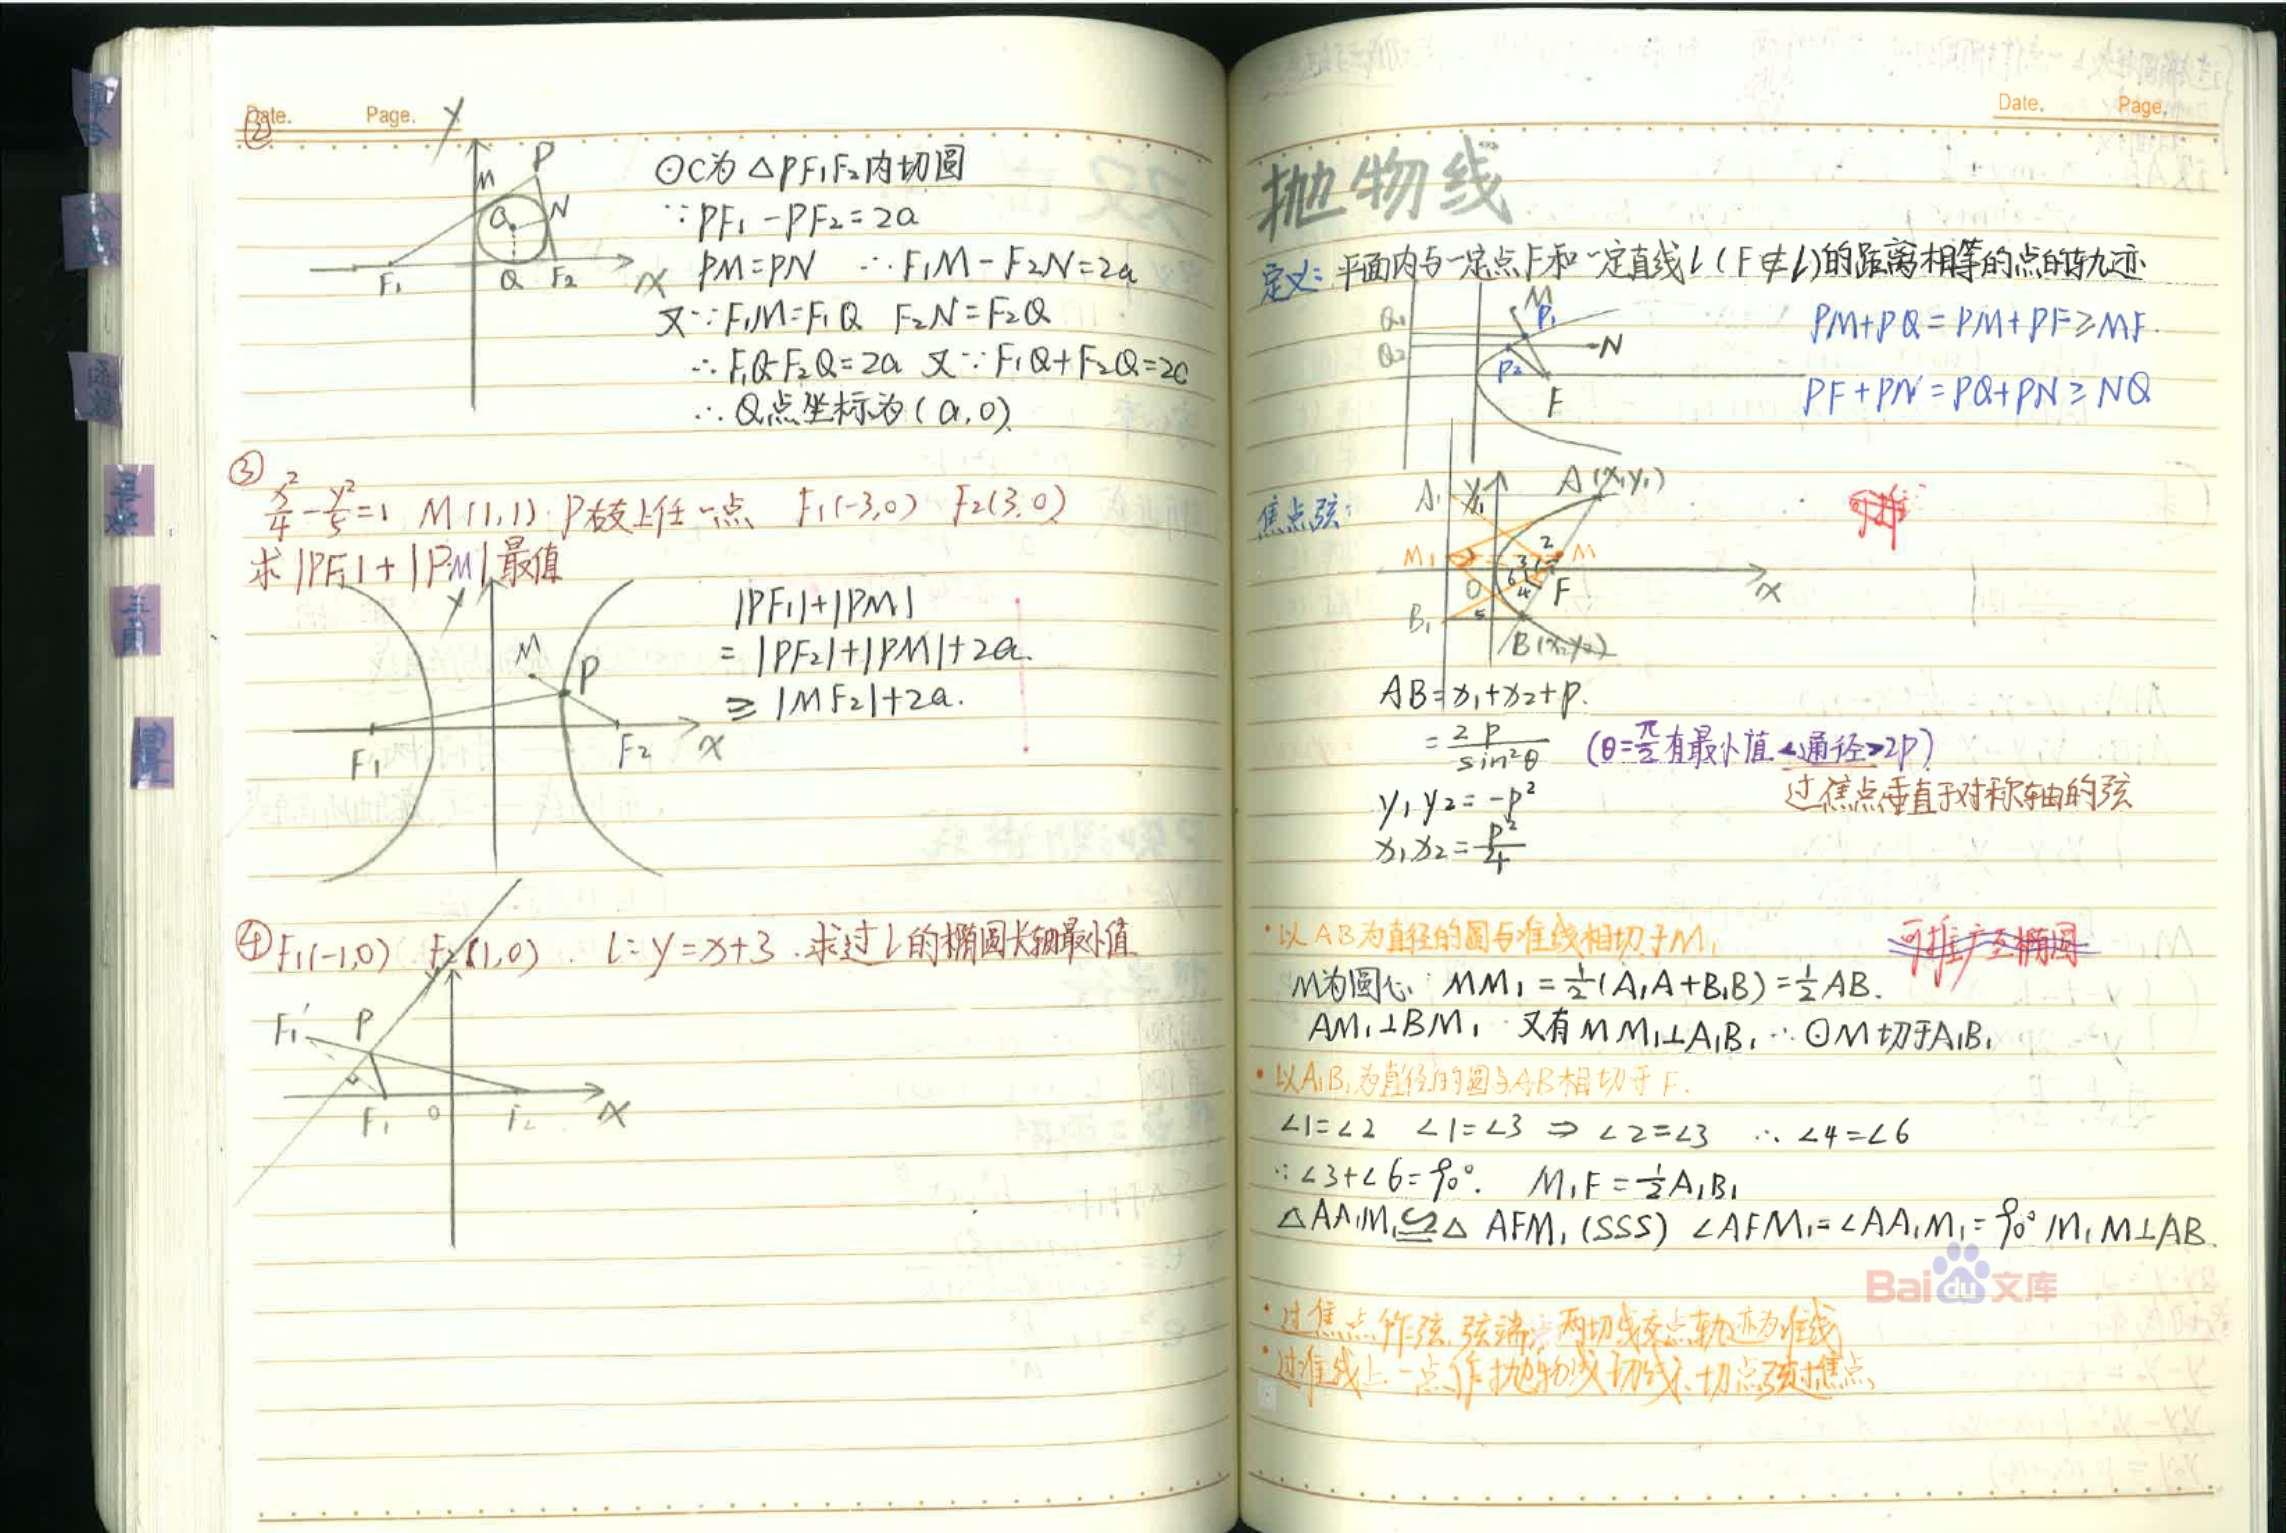 Date. Page.
②
Y
P
M
N
Q
F₁ Q F₂ X
⊙C为△PF₁F₂内切圆
∵PF₁-PF₂=2a
PM=PN ∴F₁M-F₂N=2a
又∵F₁M=F₁Q F₂N=F₂Q
∴F₁Q-F₂Q=2a 又∵F₁Q+F₂Q=2c
∴Q点坐标为(a,0)
③
x²/4-y²/5=1 M(1,1) P右支上任一点 F₁(-3,0) F₂(3,0)
求|PF₁|+|PM|最值
Y
M
P
F₁ F₂ X
|PF₁|+|PM|
=|PF₂|+|PM|+2a.
≥|MF₂|+2a.
④F₁(-1,0) F₂(1,0) . l:y=x+3 .求过l的椭圆长轴最小值
F₁' P
F₁ O F₂ X
Date. Page.
抛物线
定义:平面内与一定点F和一定直线l(F∉l)的距离相等的点的轨迹
M
Q₁ P₁
Q₂ N
P₂
F
PM+PQ=PM+PF≥MF.
PF+PN=PQ+PN≥NQ
焦点弦:
A₁ Y A(x₁,y₁)
M₁ 2 M
3 1
6
O 4 F X
B₁ 5
B(x₂,y₂)
AB=x₁+x₂+p.
=2p/sin²θ (θ=π/2有最小值<通径>2p)
过焦点垂直于对称轴的弦
y₁y₂=-p²
x₁x₂=p²/4
·以AB为直径的圆与准线相切于M₁
可推广至椭圆
M为圆心 MM₁=½(A₁A+B₁B)=½AB.
AM₁⊥BM₁ 又有MM₁⊥A₁B₁ ∴⊙M切于A₁B₁
·以A₁B₁为直径的圆与AB相切于F.
∠1=∠2 ∠1=∠3 ⇒ ∠2=∠3 ∴∠4=∠6
∴∠3+∠6=90°. M₁F=½A₁B₁
△AA₁M₁≌△AFM₁(SSS) ∠AFM₁=∠AA₁M₁=90° M₁M⊥AB.
Baidu文库
·过焦点作弦,弦端点两切线交点轨迹为准线
·过准线上一点作抛物线切线,切点弦过焦点